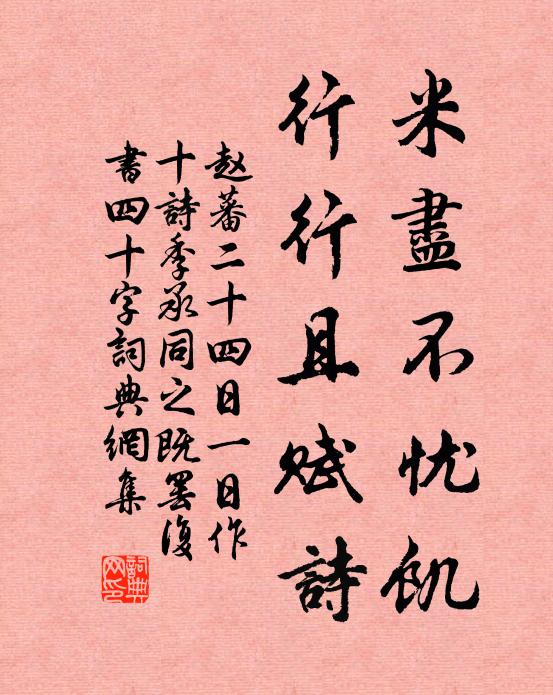 米盡不忧飢
行行且赋詩
赵蕃二十四日一日作
十詩季承同之既罢復
書四十字詞典網集
詞典网印